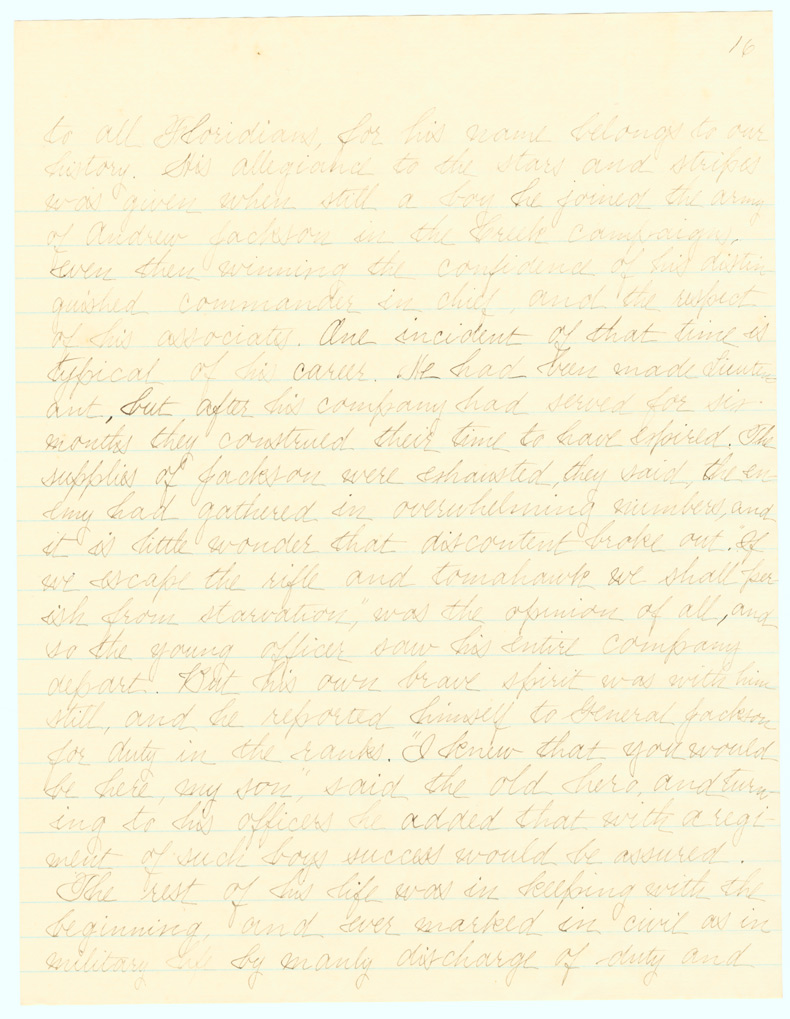 16
to all Floridians, for his name belongs to our
history. His allegiance to the stars and stripes
was given when still a boy he joined the army
of Andrew Jackson in the Creek campaigns,
even then winning the confidence of his distin
guished commander in chief, and the respect
of his associates. One incident of that time is
typical of his career. He had been made lieuten-
ant, but after his company had served for six
months they construed their time to have expired. The
supplies of Jackson were exhausted, they said, the en-
emy had gathered in overwhelming numbers, and
it is little wonder that discontent broke out. "If
we escape the rifle and tomahawk we shall per
ish from starvation", was the opinion of all, and
so the young officer saw his entire company
depart. But his own brave spirit was with him
still, and he reported himself to General Jackson
for duty in the ranks. "I knew that you would
be here, my son", said the old hero, and turn-
ing to his officers he added that with a regi-
ment of such boys success would be assured.
The rest of his life was in keeping with the
beginning, and ever marked in civil as in
military life by manly discharge of duty and